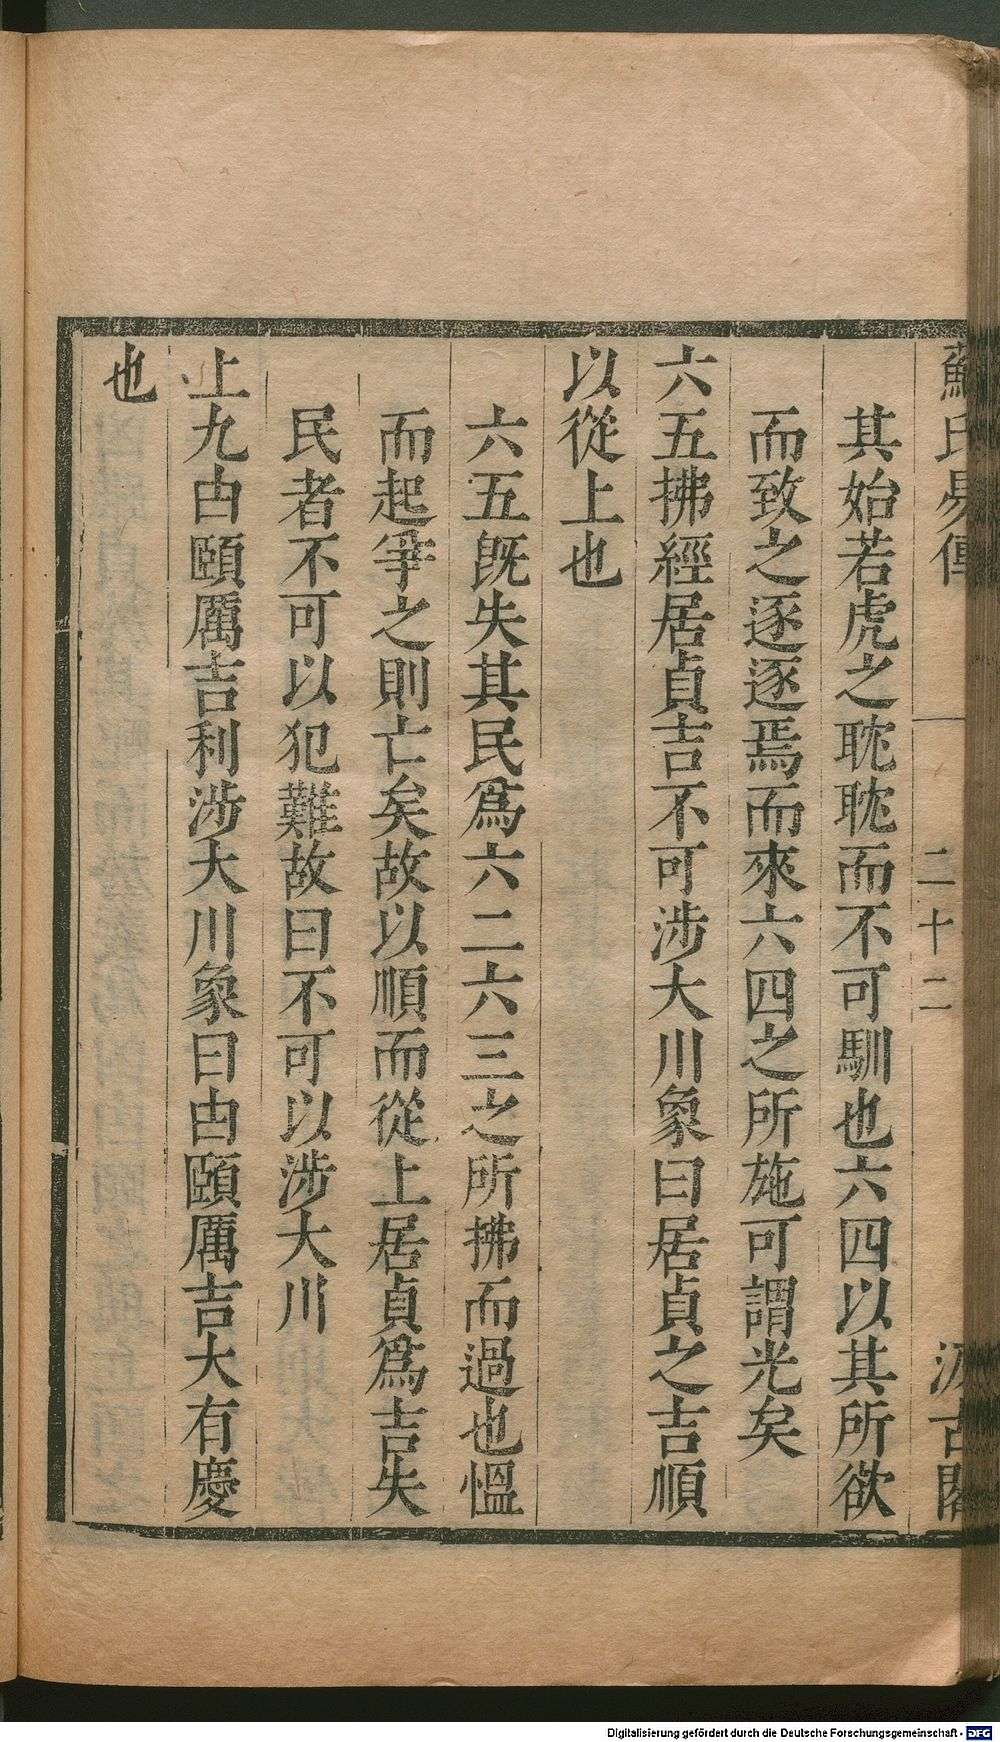 蘇氏易傳 二十二 汲古閣
其始若虎之耽耽而不可馴也六四以其所欲
而致之逐逐焉而來六四之所施可謂光矣
六五拂經居貞吉不可涉大川象曰居貞之吉順
以從上也
六五旣失其民爲六二六三之所拂而過也慍
而起爭之則亡矣故以順而從上居貞爲吉失
民者不可以犯難故曰不可以涉大川
上九甴頤厲吉利涉大川象曰甴頤厲吉大有慶
也
Digitalisierung gefördert durch die Deutsche Forschungsgemeinschaft - DFG